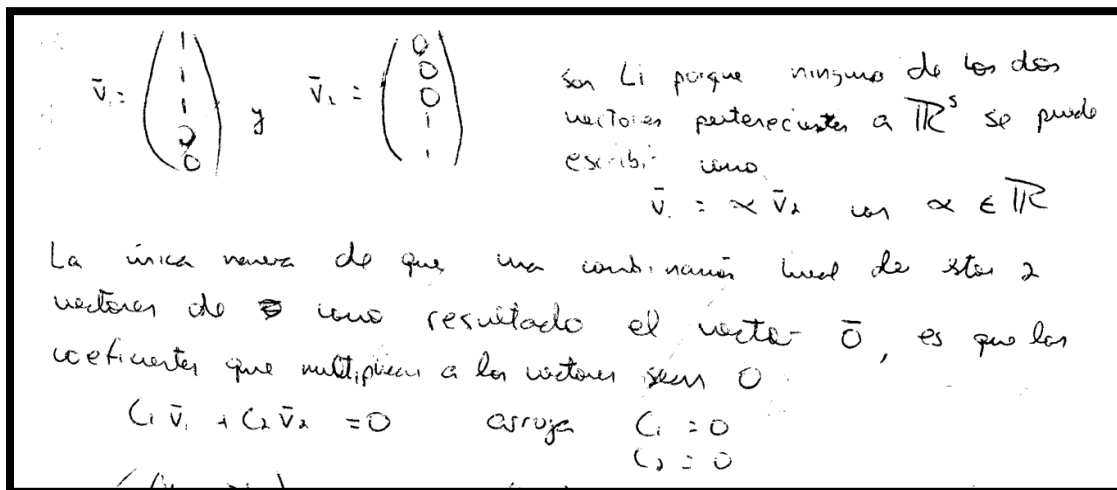 v̄₁ = (1 1 1 0 0) y v̄₂ = (0 0 0 1 1) son Li porque ninguno de los dos
vectores pertenecientes a ℝ⁵ se puede
escribir como
v̄₁ = α v̄₂ con α ∈ ℝ
La única manera de que una combinación lineal de estos 2
vectores de como resultado el vector 0̄, es que los
coeficientes que multiplican a los vectores sean 0
C₁ v̄₁ + C₂ v̄₂ = 0 arroja C₁ = 0
C₂ = 0